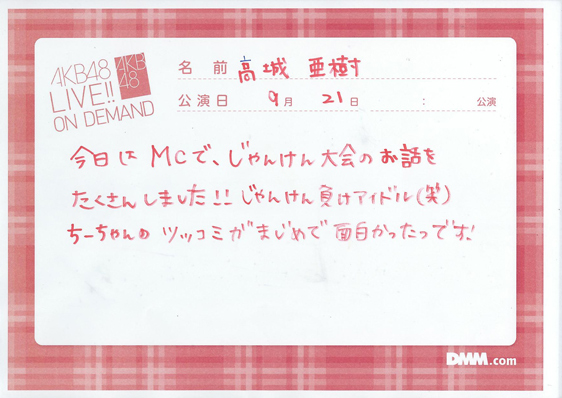 AKB48
LIVE!!
ON DEMAND
AKB
48
名 前 高城 亜樹
公演日 9月 21日 : 公演
今日はMCで、じゃんけん大会のお話を
たくさんしました!! じゃんけん負けアイドル(笑)
ちーちゃんのツッコミがまじめで面白かったっです!
DMM.com